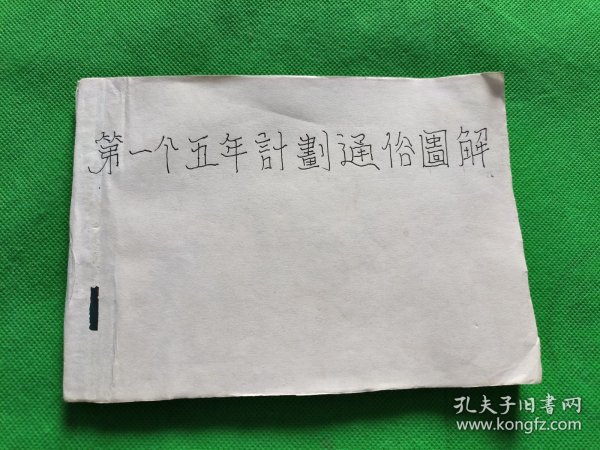 第一个五年計劃通俗圖解
孔夫子旧书网
www.kongfz.com